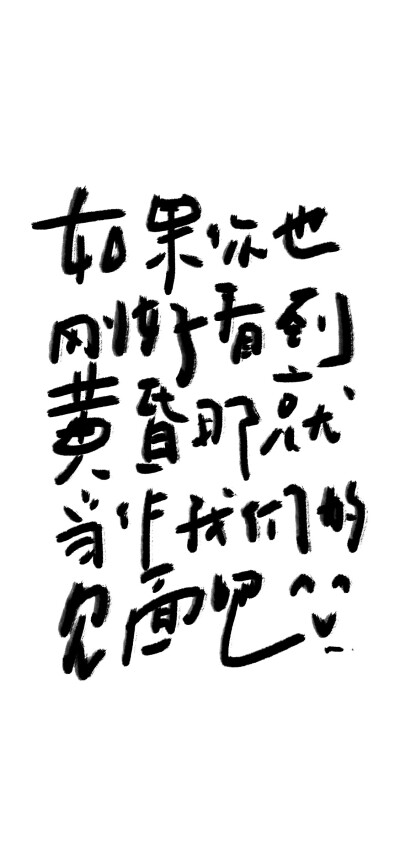 如果你也
刚好看到
黄昏那就
当作我们的
见面吧